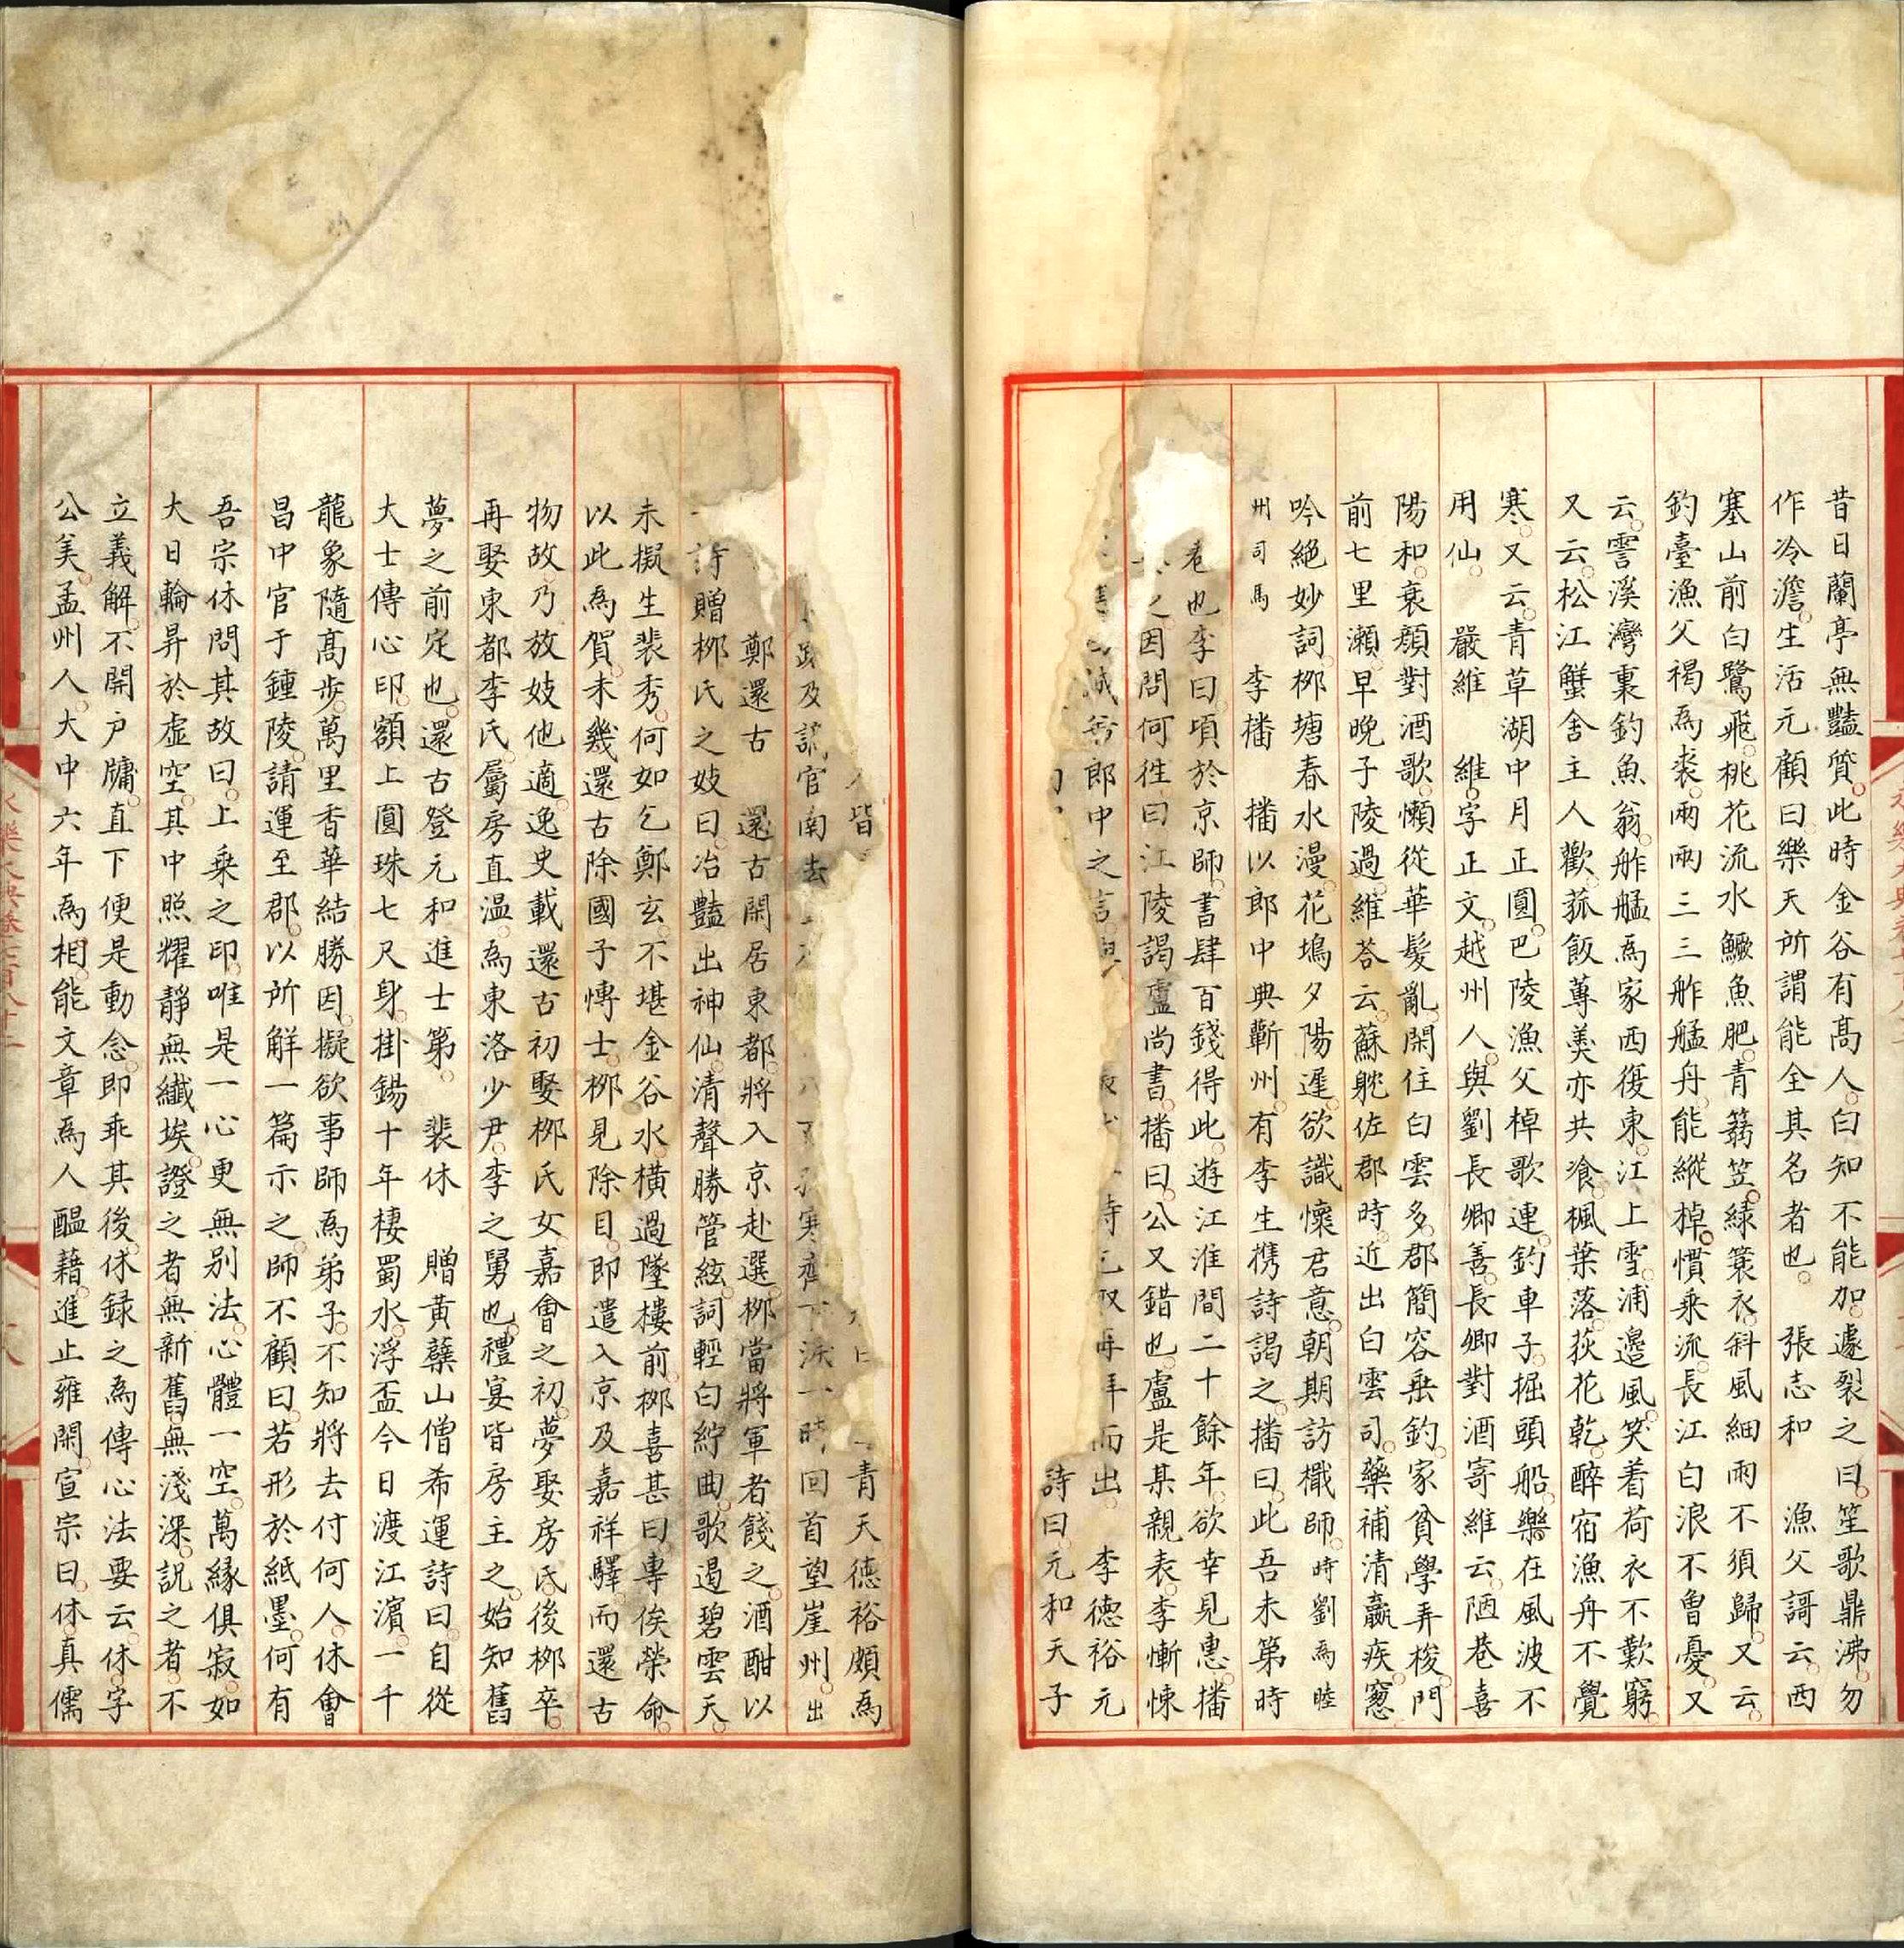 昔日蘭亭無豔質此時金谷有高人白知不能加遽裂之曰笙歌鼎沸勿
作冷澹生活元顧曰樂天所謂能全其名者也 張志和 漁父謌云西
塞山前白鷺飛桃花流水鱖魚肥青蒻笠綠蓑衣斜風細雨不須歸又云
釣臺漁父褐爲裘兩兩三三舴艋舟能縱棹慣乘流長江白浪不曽憂又
云霅溪灣裏釣魚翁舴艋爲家西復東江上雪浦邊風笑着荷衣不歎窮
又云松江蟹舍主人歡菰飯蓴羮亦共飡楓葉落荻花乾醉宿漁舟不覺
寒又云青草湖中月正圓巴陵漁父棹歌連釣車子掘頭船樂在風波不
用仙 嚴維 維字正文越州人與劉長卿善長卿對酒寄維云陋巷喜
陽和衰顔對酒歌懶從華髮亂閑住白雲多郡簡容垂釣家貧學弄梭門
前七里瀨早晚子陵過維荅云蘇躭佐郡時近出白雲司藥補清羸疾窻
吟絶妙詞栁塘春水漫花塢夕陽遲欲識懷君意朝期訪檝師時劉爲睦
州司馬 李播 播以郎中典蘄州有李生携詩謁之播曰此吾未第時
卷也李曰頃於京師書肆百錢得此遊江淮間二十餘年欲幸見惠播
之因問何徃曰江陵謁盧尚書播曰公又錯也盧是某親表李慚悚
郎中之言 而出 李德裕 元
詩曰元和天子
青天德裕頗爲
及謫官南去 寒 下淚一時回首望崖州出
鄭還古 還古閑居東都將入京赴選栁當將軍者餞之酒酣以
詩贈栁氏之妓曰冶豔出神仙清聲勝管絃詞輕白紵曲歌遏碧雲天
未擬生裴秀何如乞鄭玄不堪金谷水橫過墜樓前栁喜甚曰專俟榮命
以此爲賀未幾還古除國子博士栁見除目即遣入京及嘉祥驛而還古
物故乃放妓他適逸史載還古初娶栁氏女嘉會之初夢娶房氏後栁卒
再娶東都李氏屬房直温爲東洛少尹李之舅也禮宴皆房主之始知舊
夢之前定也還古登元和進士第 裴休 贈黃蘗山僧希運詩曰自從
大士傳心印額上圓珠七尺身掛錫十年棲蜀水浮盃今日渡江濱一千
龍象隨高步萬里香華結勝因擬欲事師爲弟子不知將去付何人休會
昌中官于鍾陵請運至郡以所解一篇示之師不顧曰若形於紙墨何有
吾宗休問其故曰上乘之印唯是一心更無别法心體一空萬緣俱寂如
大日輪昇於虛空其中照耀靜無纎埃證之者無新舊無淺深説之者不
立義解不開户牖直下便是動念即乖其後休録之爲傳心法要云休字
公美孟州人大中六年爲相能文章爲人醖藉進止雍閑宣宗曰休真儒